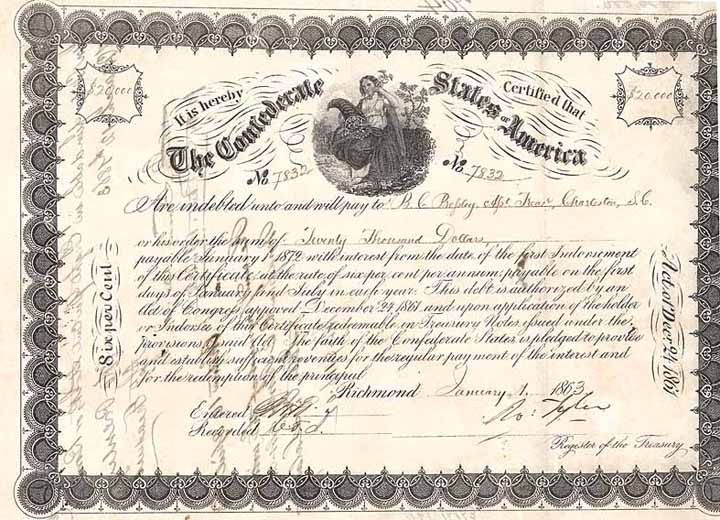 $20.000
It is hereby Certified that
$20.000
The Confederate States of America
No 7832 No 7832
Are indebted unto and will pay to B. C. Asst Treas. Charleston, S.C.
or his order the sum of Twenty Thousand Dollars,
payable January 1st 1872 with interest from the date of the first Indorsement
of this Certificate, at the rate of six per cent per annum, payable on the first
days of January and July in each year. This debt is authorized by an
Act of Congress approved December 24, 1861, and upon application of the holder
or Indorsee of this Certificate, redeemable in Treasury Notes issued under the
provisions of said Act. The faith of the Confederate States is pledged to provide
and establish sufficient revenues for the regular payment of the interest and
for the redemption of the principal
Six per Cent
Act of Decr 24, 1861
Richmond January 1. 1863
Entered
Recorded
Ro: Tyler
Register of the Treasury